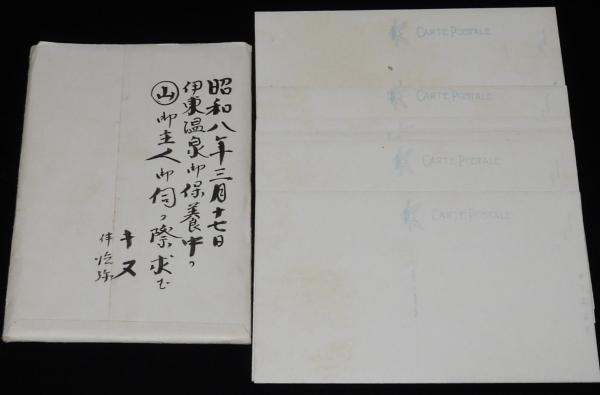 昭和八年三月十七日
伊東温泉御保養中の
㊤御主人御伺の際求む
キヌ
伴
CARTE POSTALE
CARTE POSTALE
CARTE POSTALE
CARTE POSTALE